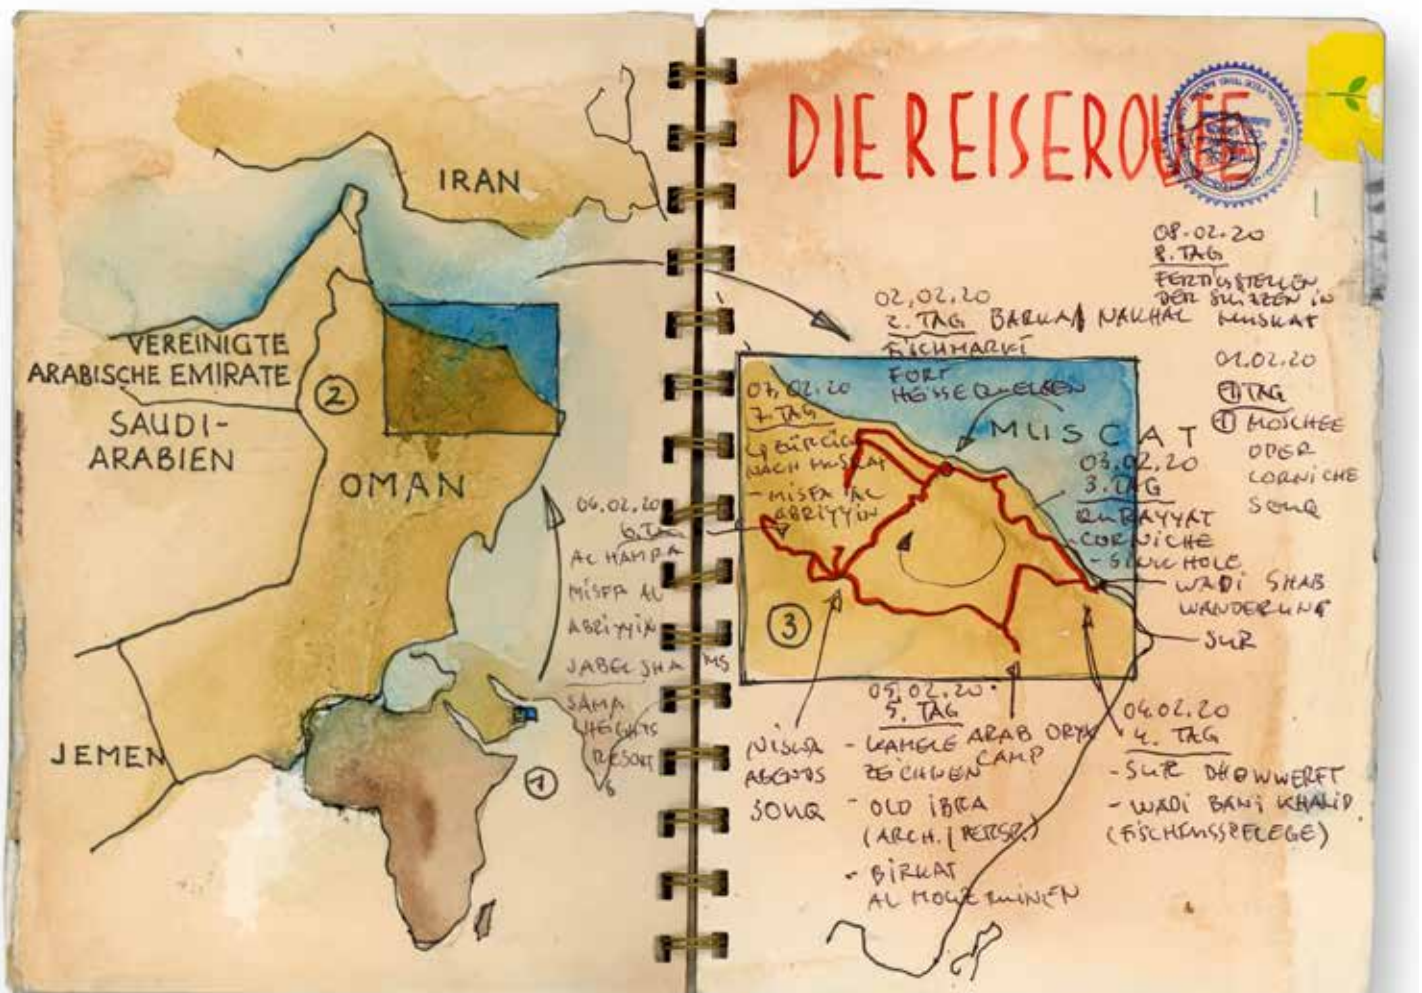 IRAN
VEREINIGTE
ARABISCHE EMIRATE
②
SAUDI-
ARABIEN
OMAN
JEMEN
①
06.02.20
6. TAG
AL HAMRA
MISFA AL
ABRIYYIN
JABEL SHAMS
SAMA
HEIGHTS
RESORT
DIE REISEROUTE
08.02.20
8. TAG
FERTIGSTELLEN
DER SKIZZEN IN
MUSKAT
02.02.20
2. TAG BARKA / NAKHAL
FISCHMARKT
FORT
HEISSE QUELLEN
01.02.20
1 TAG
① MOSCHEE
ODER
CORNICHE
SOUQ
07.02.20
7. TAG
NACH MUSKAT
- MISFA AL
ABRIYYIN
MUSCAT
03.02.20
3. TAG
QURAYYAT
CORNICHE
- SINKHOLE
WADI SHAB
WANDERUNG
SUR
③
05.02.20
5. TAG
- KAMELE
ZEICHNEN
- OLD IBRA
(ARCH. / PERSP.)
- BIRKAT
AL MOUZ RUINEN
ARAB ORYX
CAMP
NISWA
ABENDS
SOUQ
04.02.20
4. TAG
- SUR DHOWWERFT
- WADI BANI KHALID